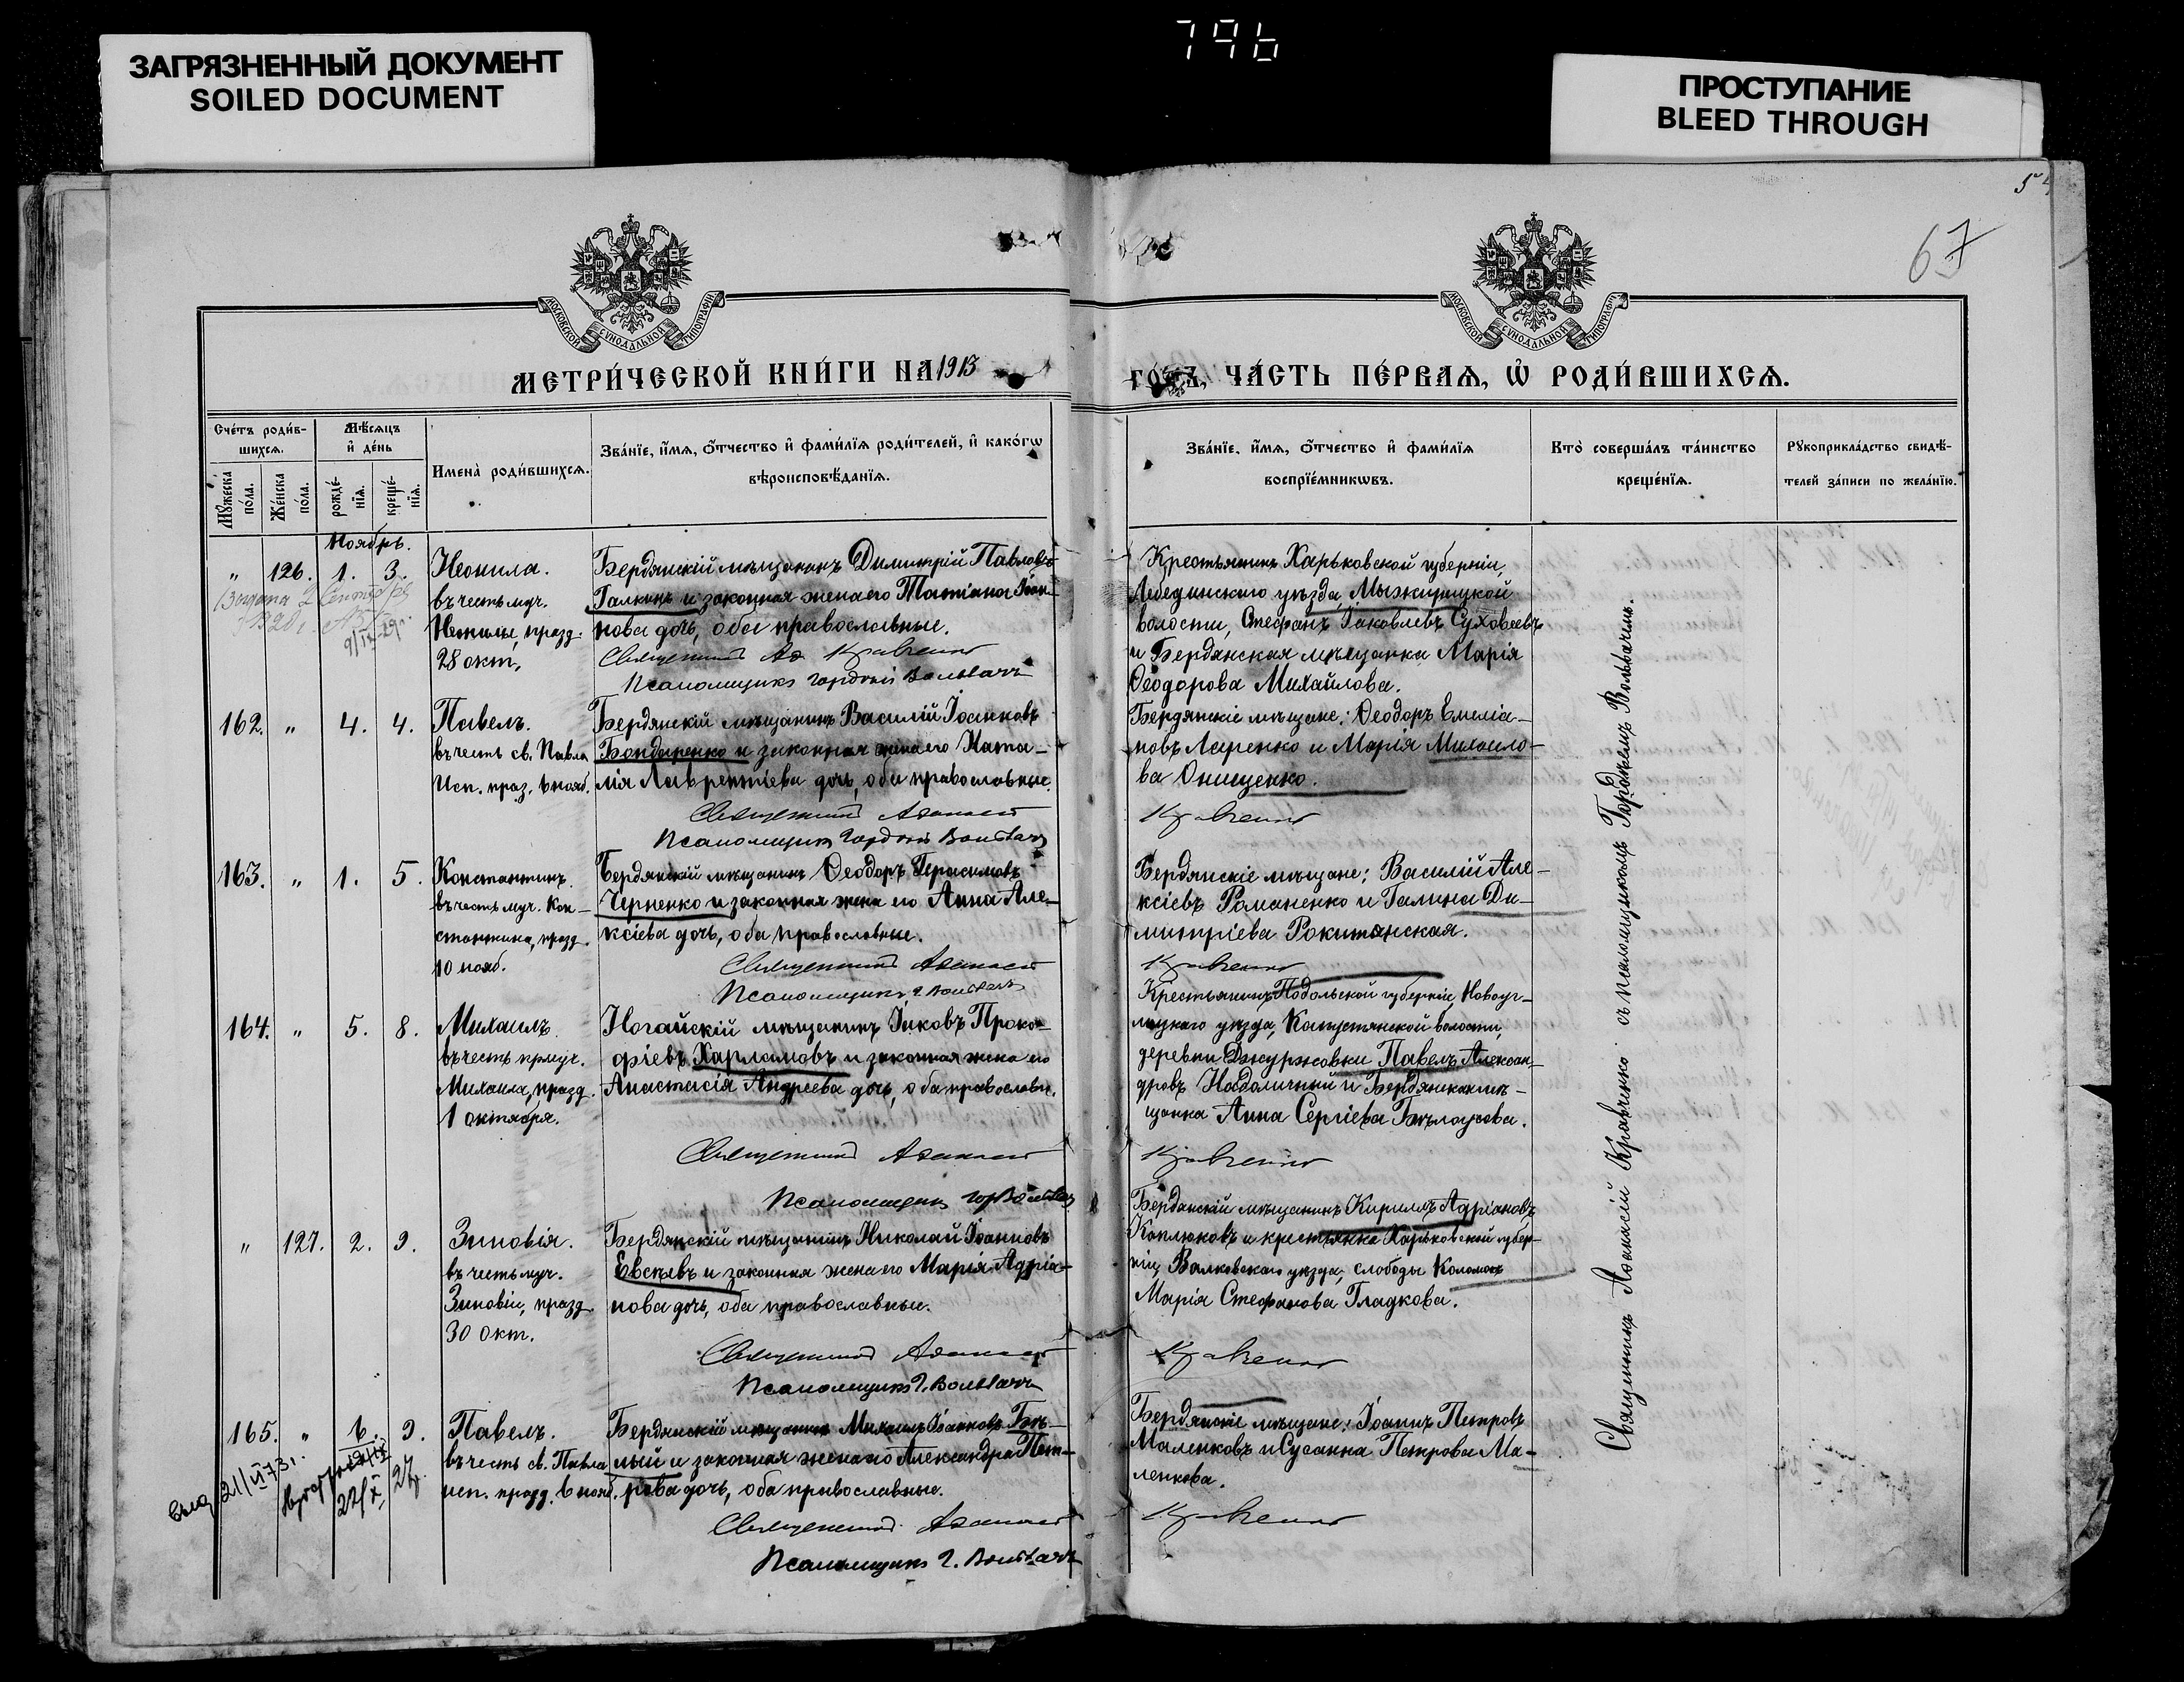 796
ЗАГРЯЗНЕННЫЙ ДОКУМЕНТ
SOILED DOCUMENT
ПРОСТУПАНИЕ
BLEED THROUGH
67
МОСКОВСКОЙ СѴНОДАЛЬНОЙ ТИПОГРАФІИ
МОСКОВСКОЙ СѴНОДАЛЬНОЙ ТИПОГРАФІИ
МЕТРИ́ЧЕСКОЙ КНИ́ГИ НА 1913
ГО́ДЪ, ЧА́СТЬ ПЕ́РВАѦ, Ѡ҆ РОДИ́ВШИХСѦ.
Сче́тъ роди́в-
шихсѧ.
Мѣ́сѧцъ
и҆ де́нь
Мꙋ́жеска по́ла.
Же́нска по́ла.
рожде́-
нїѧ.
креще́-
нїѧ.
Имена̀ роди́вшихсѧ.
Зва́нїе, и҆́мѧ, ѻ҆́тчество и҆ фами́лїѧ роди́телей, и҆ како́гѡ
вѣроисповѣ́данїѧ.
Зва́нїе, и҆́мѧ, ѻ҆́тчество и҆ фами́лїѧ
воспрїе́мникѡвъ.
Кто̀ соверша́лъ та́инство
креще́нїѧ.
Рꙋкоприкла́дство свидѣ́-
телей за́писи по жела́нїю.
Ноябрь.
" 126. 1. 3. Неонила.
въ честь муч.
Неонилы, празд.
28 окт.
Бердянскій мѣщанинъ Димитрій Павловъ
Галкинъ и законная жена его Татіана Іоан-
нова дочь, оба православные.
Священникъ Аѳ. Кравченко
Псаломщикъ Гордій Вольвачъ
Крестьянинъ Харьковской губерніи,
Лебединскаго уѣзда,
волости, Стефанъ Іаковлевъ Суховеевъ
и Бердянская мѣщанка Марія
Ѳеодорова Михайлова.
162. " 4. 4. Павелъ.
въ честь св. Павла
Исп. праз. 6 нояб.
Бердянскій мѣщанинъ Василій Іоанновъ
Бондаренко и законная жена его Ната-
лія Лаврентіева дочь, оба православные.
Священникъ Аѳанасій
Псаломщикъ Гордій Вольвачъ
Бердянскіе мѣщане: Ѳеодоръ Емеліа-
новъ и Марія Михаило-
ва Онищенко.
Кравченко
163. " 1. 5. Константинъ.
въ честь муч. Кон-
стантина, празд.
10 нояб.
Бердянскій мѣщанинъ Ѳеодоръ Герасимовъ
Черненко и законная жена его Анна Але-
ксіева дочь, оба православные.
Священникъ Аѳанасій
Псаломщикъ Г. Вольвачъ
Бердянскіе мѣщане: Василій Але-
ксіевъ Романенко и Галина Ди-
митріева Рокитянская.
Кравченко
164. " 5. 8. Михаилъ
въ честь прмуч.
Михаила, празд.
1 октября.
Ногайскій мѣщанинъ Іаковъ Проко-
фіевъ Харламовъ и законная жена его
Анастасія Андреева дочь, оба православн.
Священникъ Аѳанасій
Псаломщикъ Гор. Вольвачъ
Крестьянинъ Подольской губерніи, Новоуш-
ицкаго уѣзда, Капустянской волости,
деревни Джуржовки Павелъ Алексан-
дровъ и Бердянская мѣ-
щанка Анна Сергіева Бѣлоусова.
Кравченко
" 127. 2. 9. Зиновія.
въ честь муч.
Зиновіи, празд.
30 окт.
Бердянскій мѣщанинъ Николай Іоанновъ
Евсѣевъ и законная жена его Марія Адріа-
нова дочь, оба православные.
Священникъ Аѳанасій
Псаломщикъ Г. Вольвачъ
Бердянскій мѣщанинъ Кириллъ Адріановъ
и крестьянка Харьковской губер-
ніи, Валковскаго уѣзда, слободы Коломакъ
Марія Стефанова Гладкова.
Кравченко
165. " 6. 9. Павелъ.
въ честь св. Павла
исп. празд. 6 нояб.
Бердянскій мѣщанинъ Михаилъ Іоанновъ Бѣ-
лый и законная жена его Александра Пет-
рова дочь, оба православные.
Священникъ Аѳанасій
Псаломщикъ Г. Вольвачъ
Бердянскіе мѣщане: Іоаннъ Петровъ
Маленковъ и Сусанна Петрова Ма-
ленкова.
Кравченко
Священникъ Аѳанасій Кравченко съ псаломщикомъ Гордіемъ Вольвачемъ.